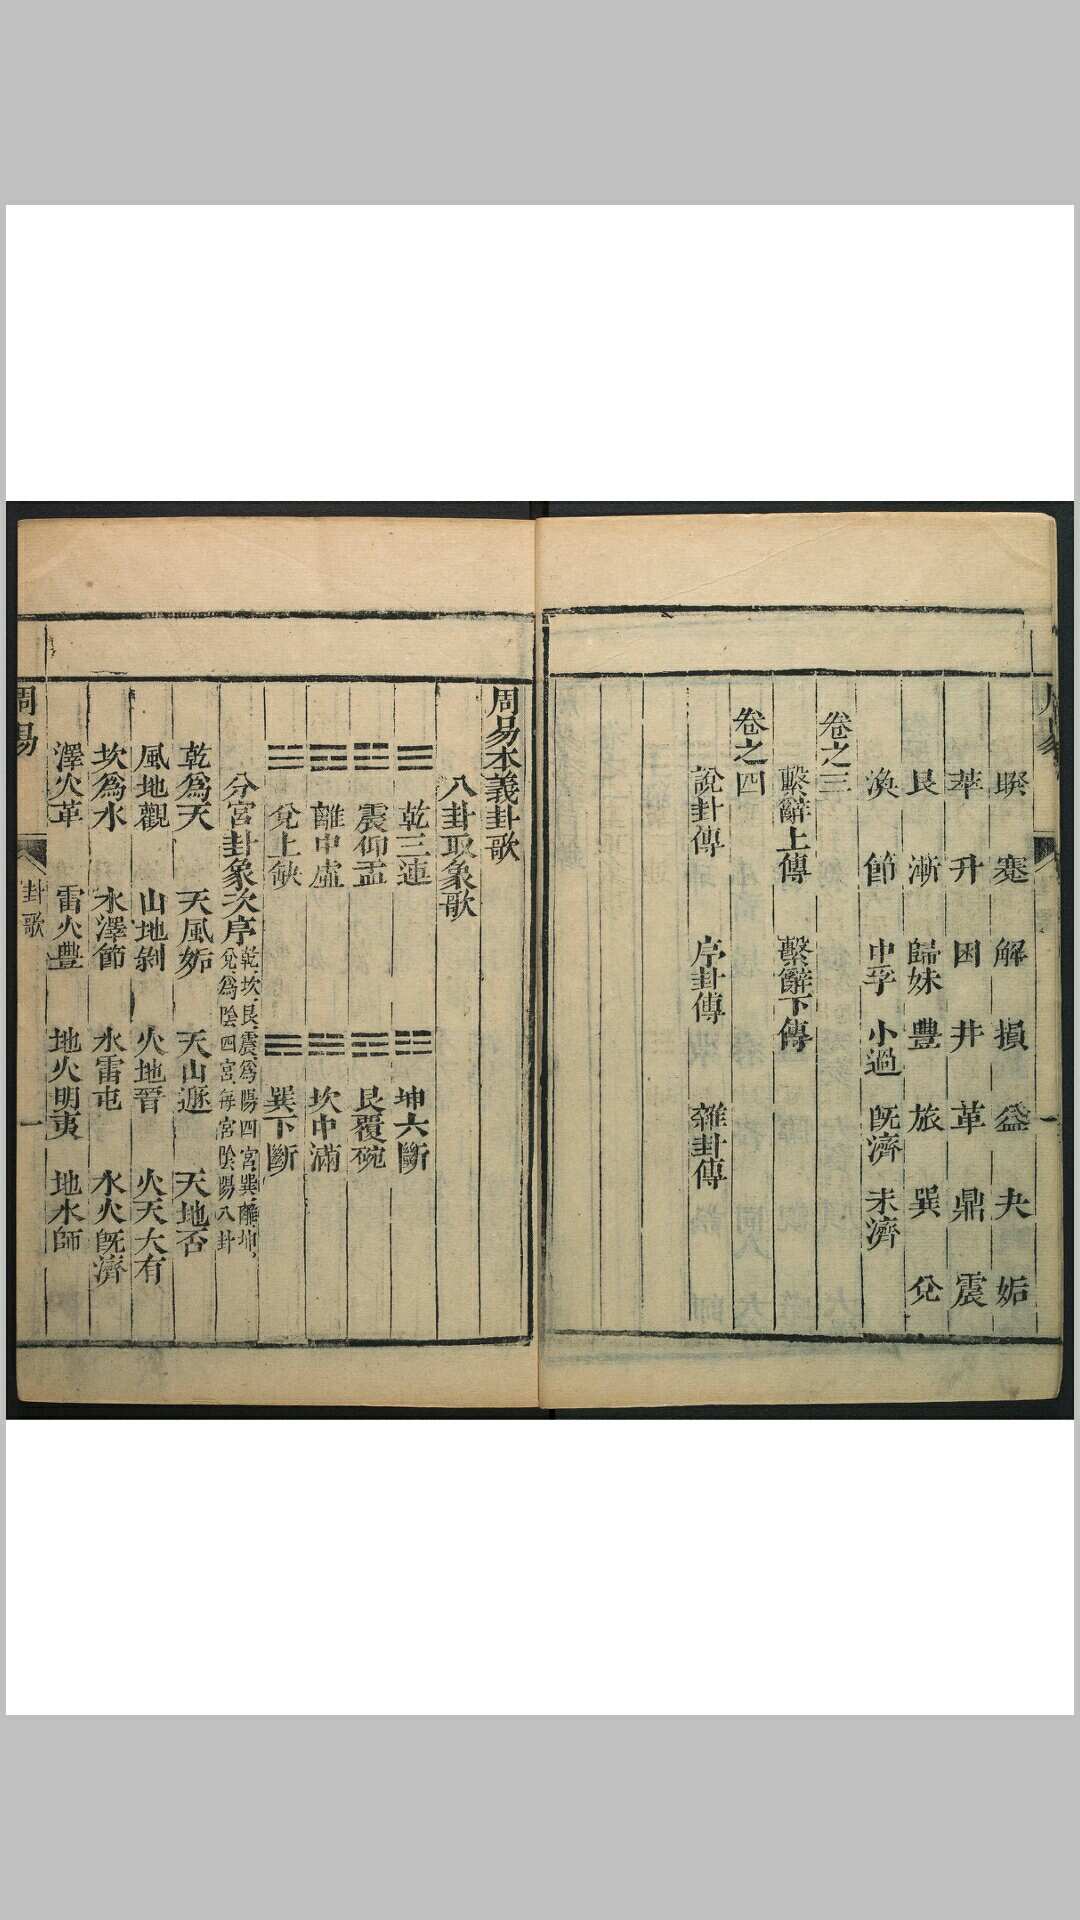 睽 蹇 解 損 益 夬 姤
萃 升 困 井 革 鼎 震
艮 漸 歸妹 豐 旅 巽 兌
渙 節 中孚 小過 旣濟 未濟
卷之三
繫辭上傳 繫辭下傳
卷之四
說卦傳 序卦傳 雜卦傳
周易本義卦歌
八卦取象歌
☰ 乾三連 ☷ 坤六斷
☳ 震仰盂 ☶ 艮覆碗
☲ 離中虛 ☵ 坎中滿
☱ 兌上缺 ☴ 巽下斷
分宮卦象次序
乾坎艮震爲陽四宮巽離坤
兌爲陰四宮每宮陰陽八卦
乾爲天 天風姤 天山遯 天地否
風地觀 山地剝 火地晉 火天大有
坎爲水 水澤節 水雷屯 水火旣濟
澤火革 雷火豐 地火明夷 地水師
周易 卦歌 一